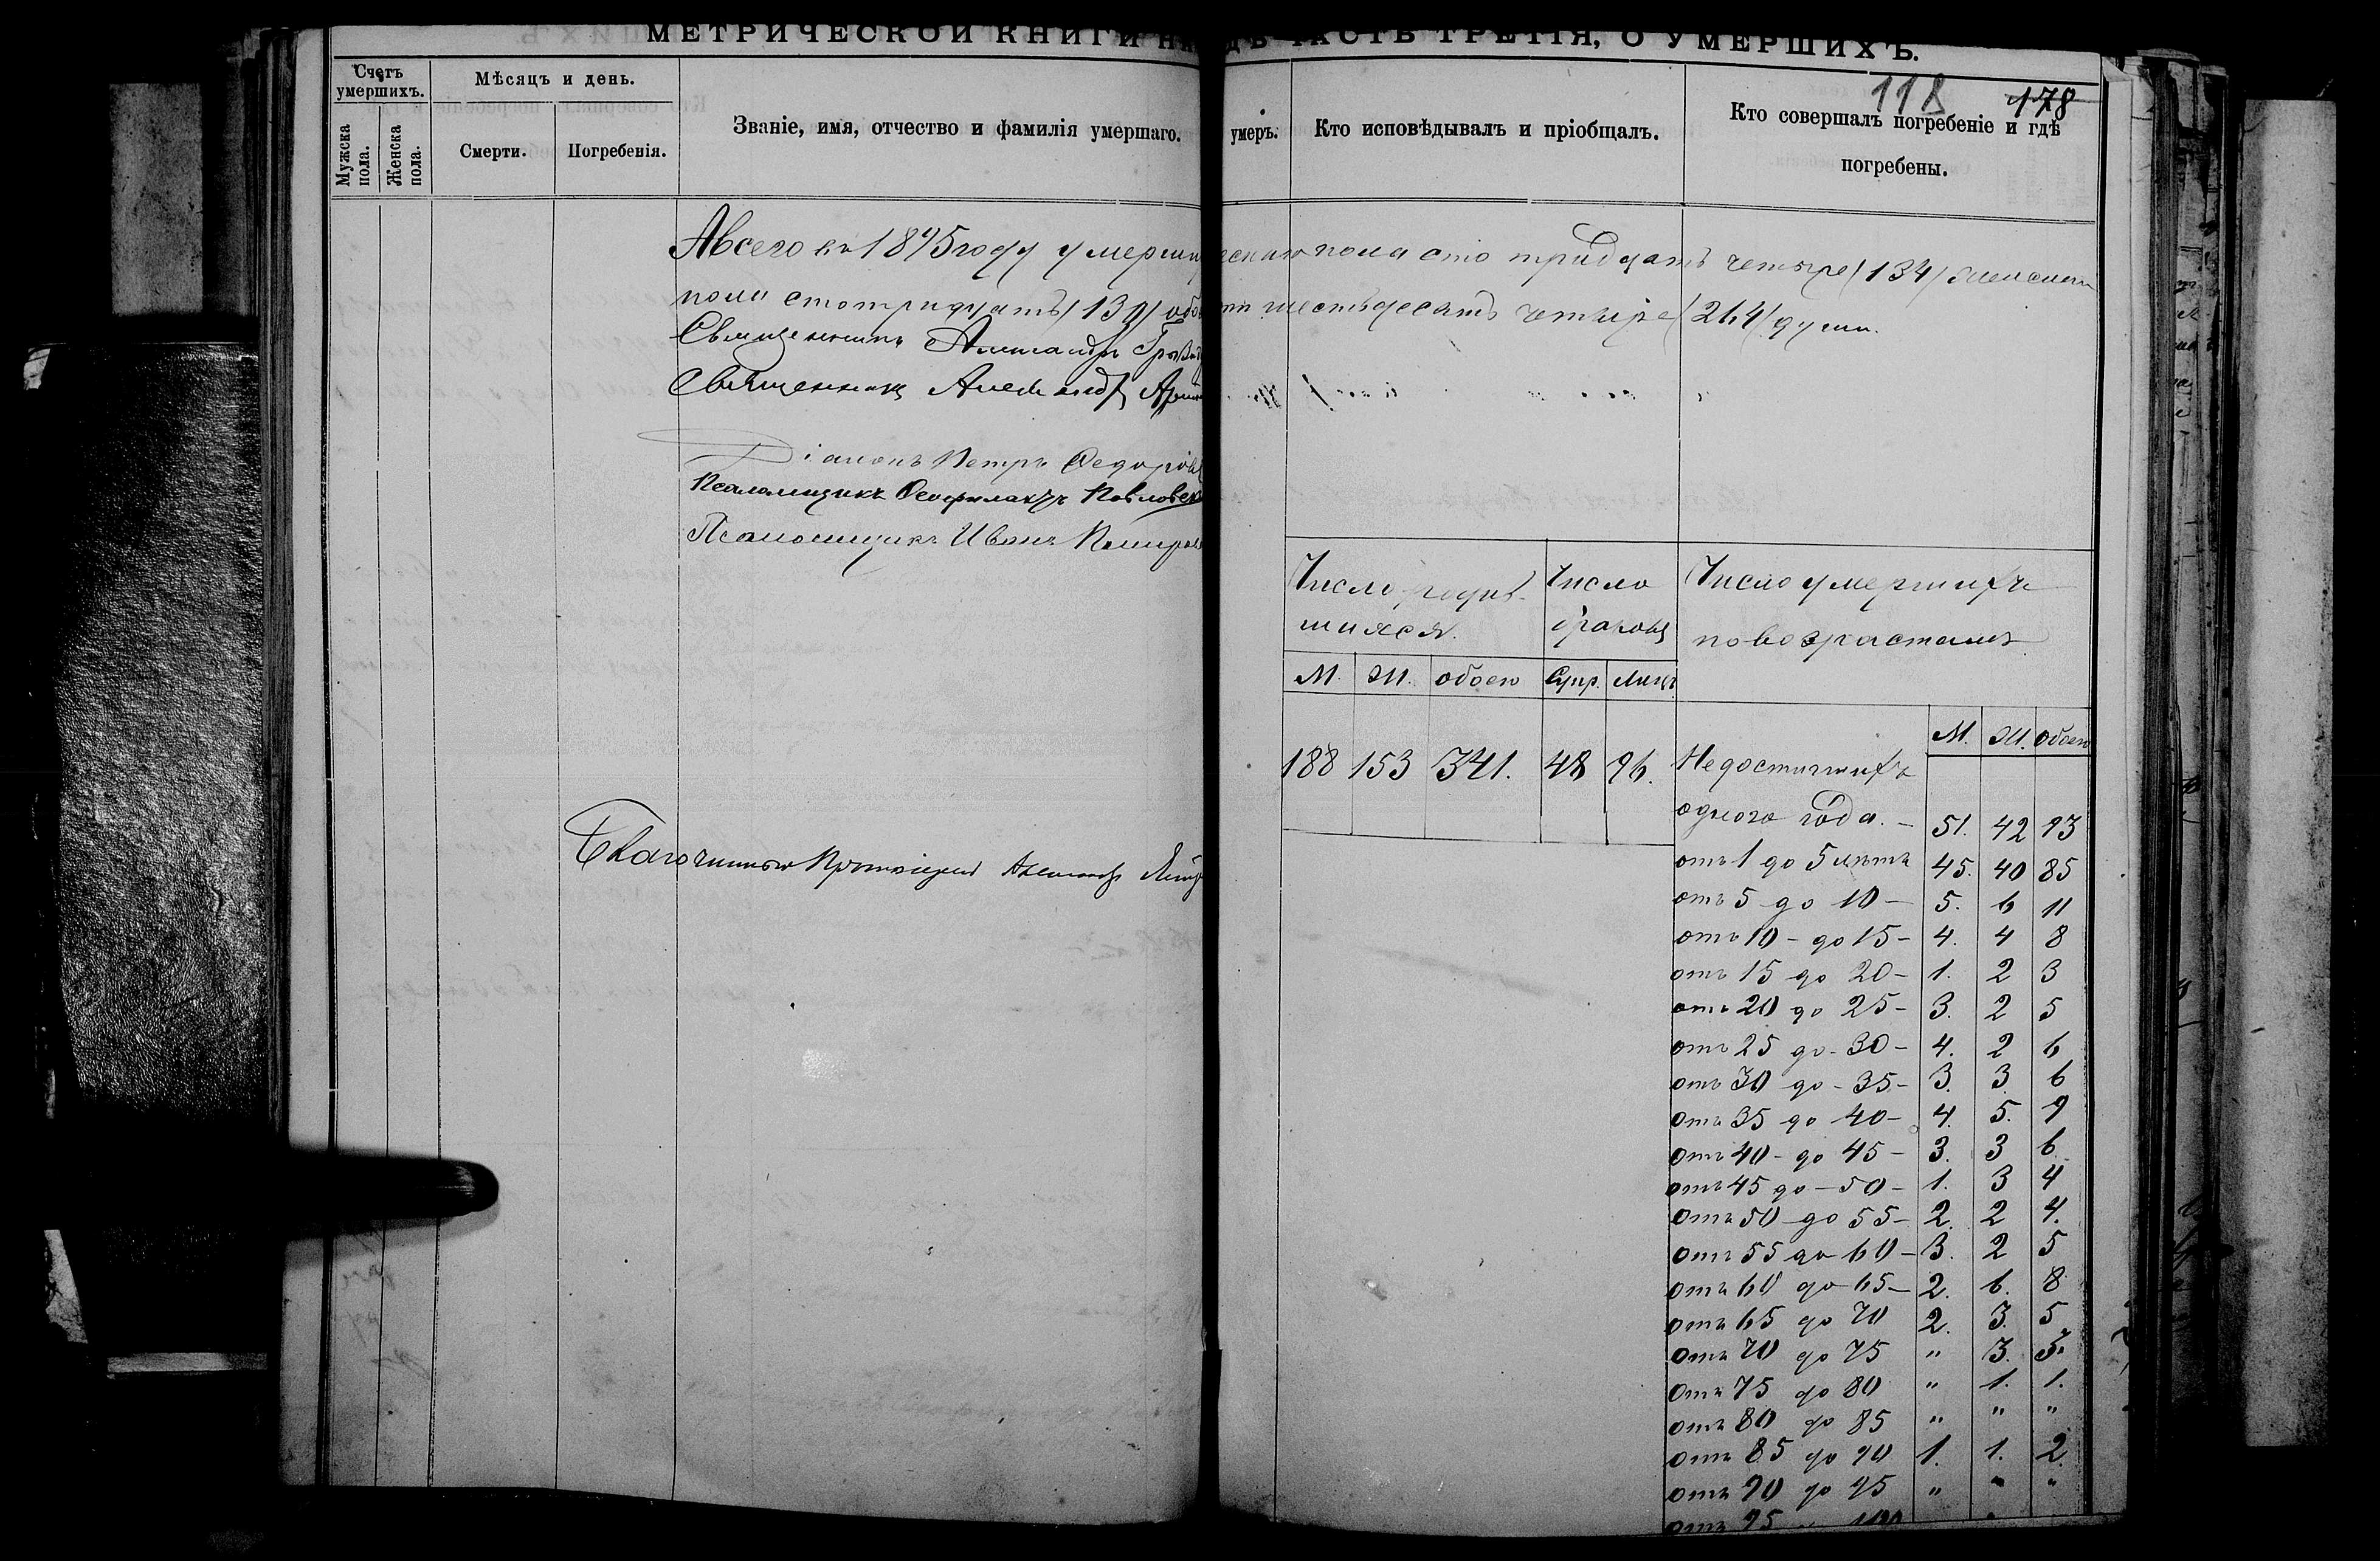 МЕТРИЧЕСКОЙ КНИГИ НА
ДЪ ЧАСТЬ ТРЕТІЯ, О УМЕРШИХЪ.
118 178
Счетъ умершихъ.
Мужска пола.
Женска пола.
Мѣсяцъ и день.
Смерти.
Погребенія.
Званіе, имя, отчество и фамилія умершаго.
умеръ.
Кто исповѣдывалъ и пріобщалъ.
Кто совершалъ погребеніе и гдѣ
погребены.
А всего въ 1875 году умерши
ескаго пола сто тридцать четыре (134) женскаго
пола сто тридцать (130) обо
ти шестьдесятъ четыре (264) души.
Священникъ Александръ
Священникъ Александръ
Діаконъ Петръ Федоров
Псаломщикъ Феофилактъ Павловск
Псаломщикъ Иванъ
Благочинный Протоіерей
Число родив-
шихся.
М. Ж. обоего
188 153 341.
Число
браковъ
Супр. Лицъ
48 96.
Число умершихъ
по возрастамъ.
М. Ж. обоего
Недостигшихъ
одного года. – 51. 42 93
отъ 1 до 5 лѣтъ 45. 40 85
отъ 5 до 10 – 5. 6 11
отъ 10 – до 15 – 4. 4 8
отъ 15 до 20 – 1. 2 3
отъ 20 до 25 – 3. 2 5
отъ 25 до – 30 – 4. 2 6
отъ 30 до – 35 – 3. 3 6
отъ 35 до 40 – 4. 5. 9
отъ 40 – до 45 – 3. 3 6
отъ 45 до – 50 – 1. 3 4
отъ 50 до 55 – 2. 2 4.
отъ 55 до 60 – 3. 2 5
отъ 60 до 65 – 2. 6. 8
отъ 65 до 70 2. 3. 5
отъ 70 до 75 " 3. 3.
отъ 75 до 80 " 1. 1.
отъ 80 до 85 " " "
отъ 85 до 90 1. 1. 2.
отъ 90 до 95 " " "
отъ 95 100